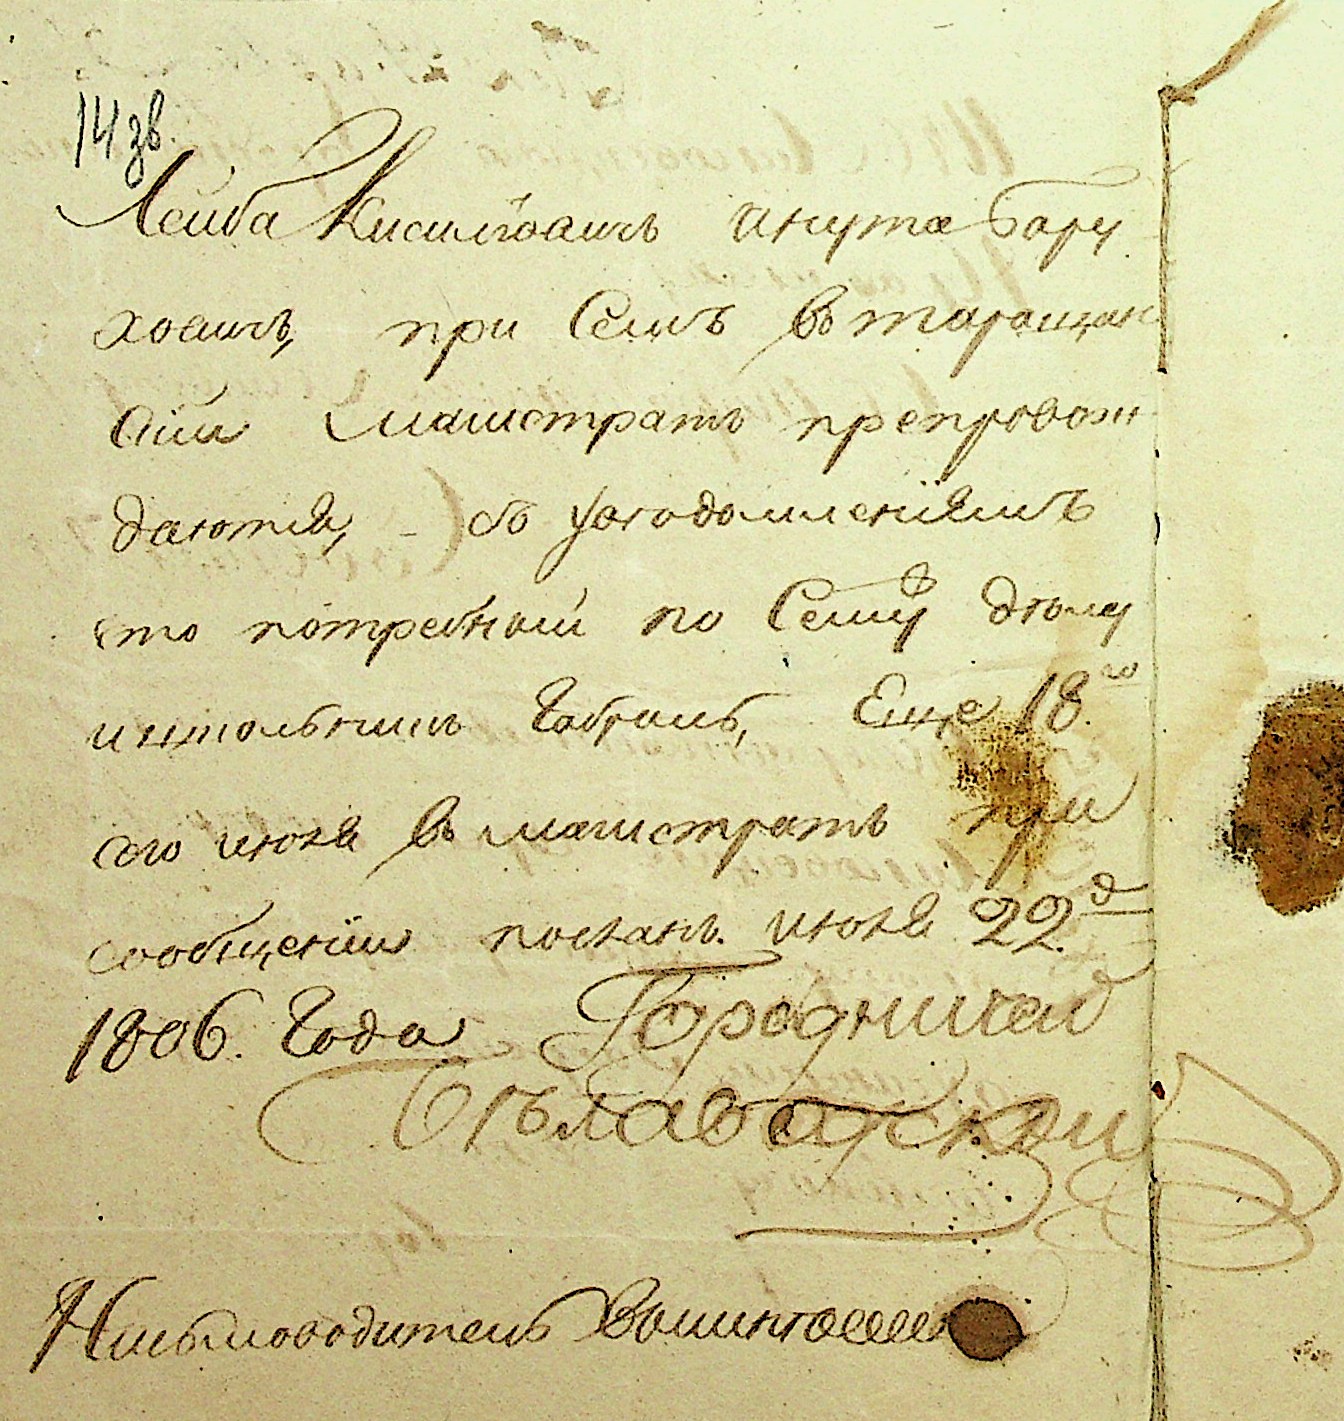 14 зв.
Лейба Кисилювичъ инута Бару
ховичъ, при Семъ въ таращан
скiй магистратъ препровож
даются, съ уведомлениемъ
что потребный по Сему делу
Габрилъ, Еще 18.го
сего июня въ магистратъ при
сообщении посланъ. июня 22.д
1806. Года Городничей
Белавской
Письмоводитель